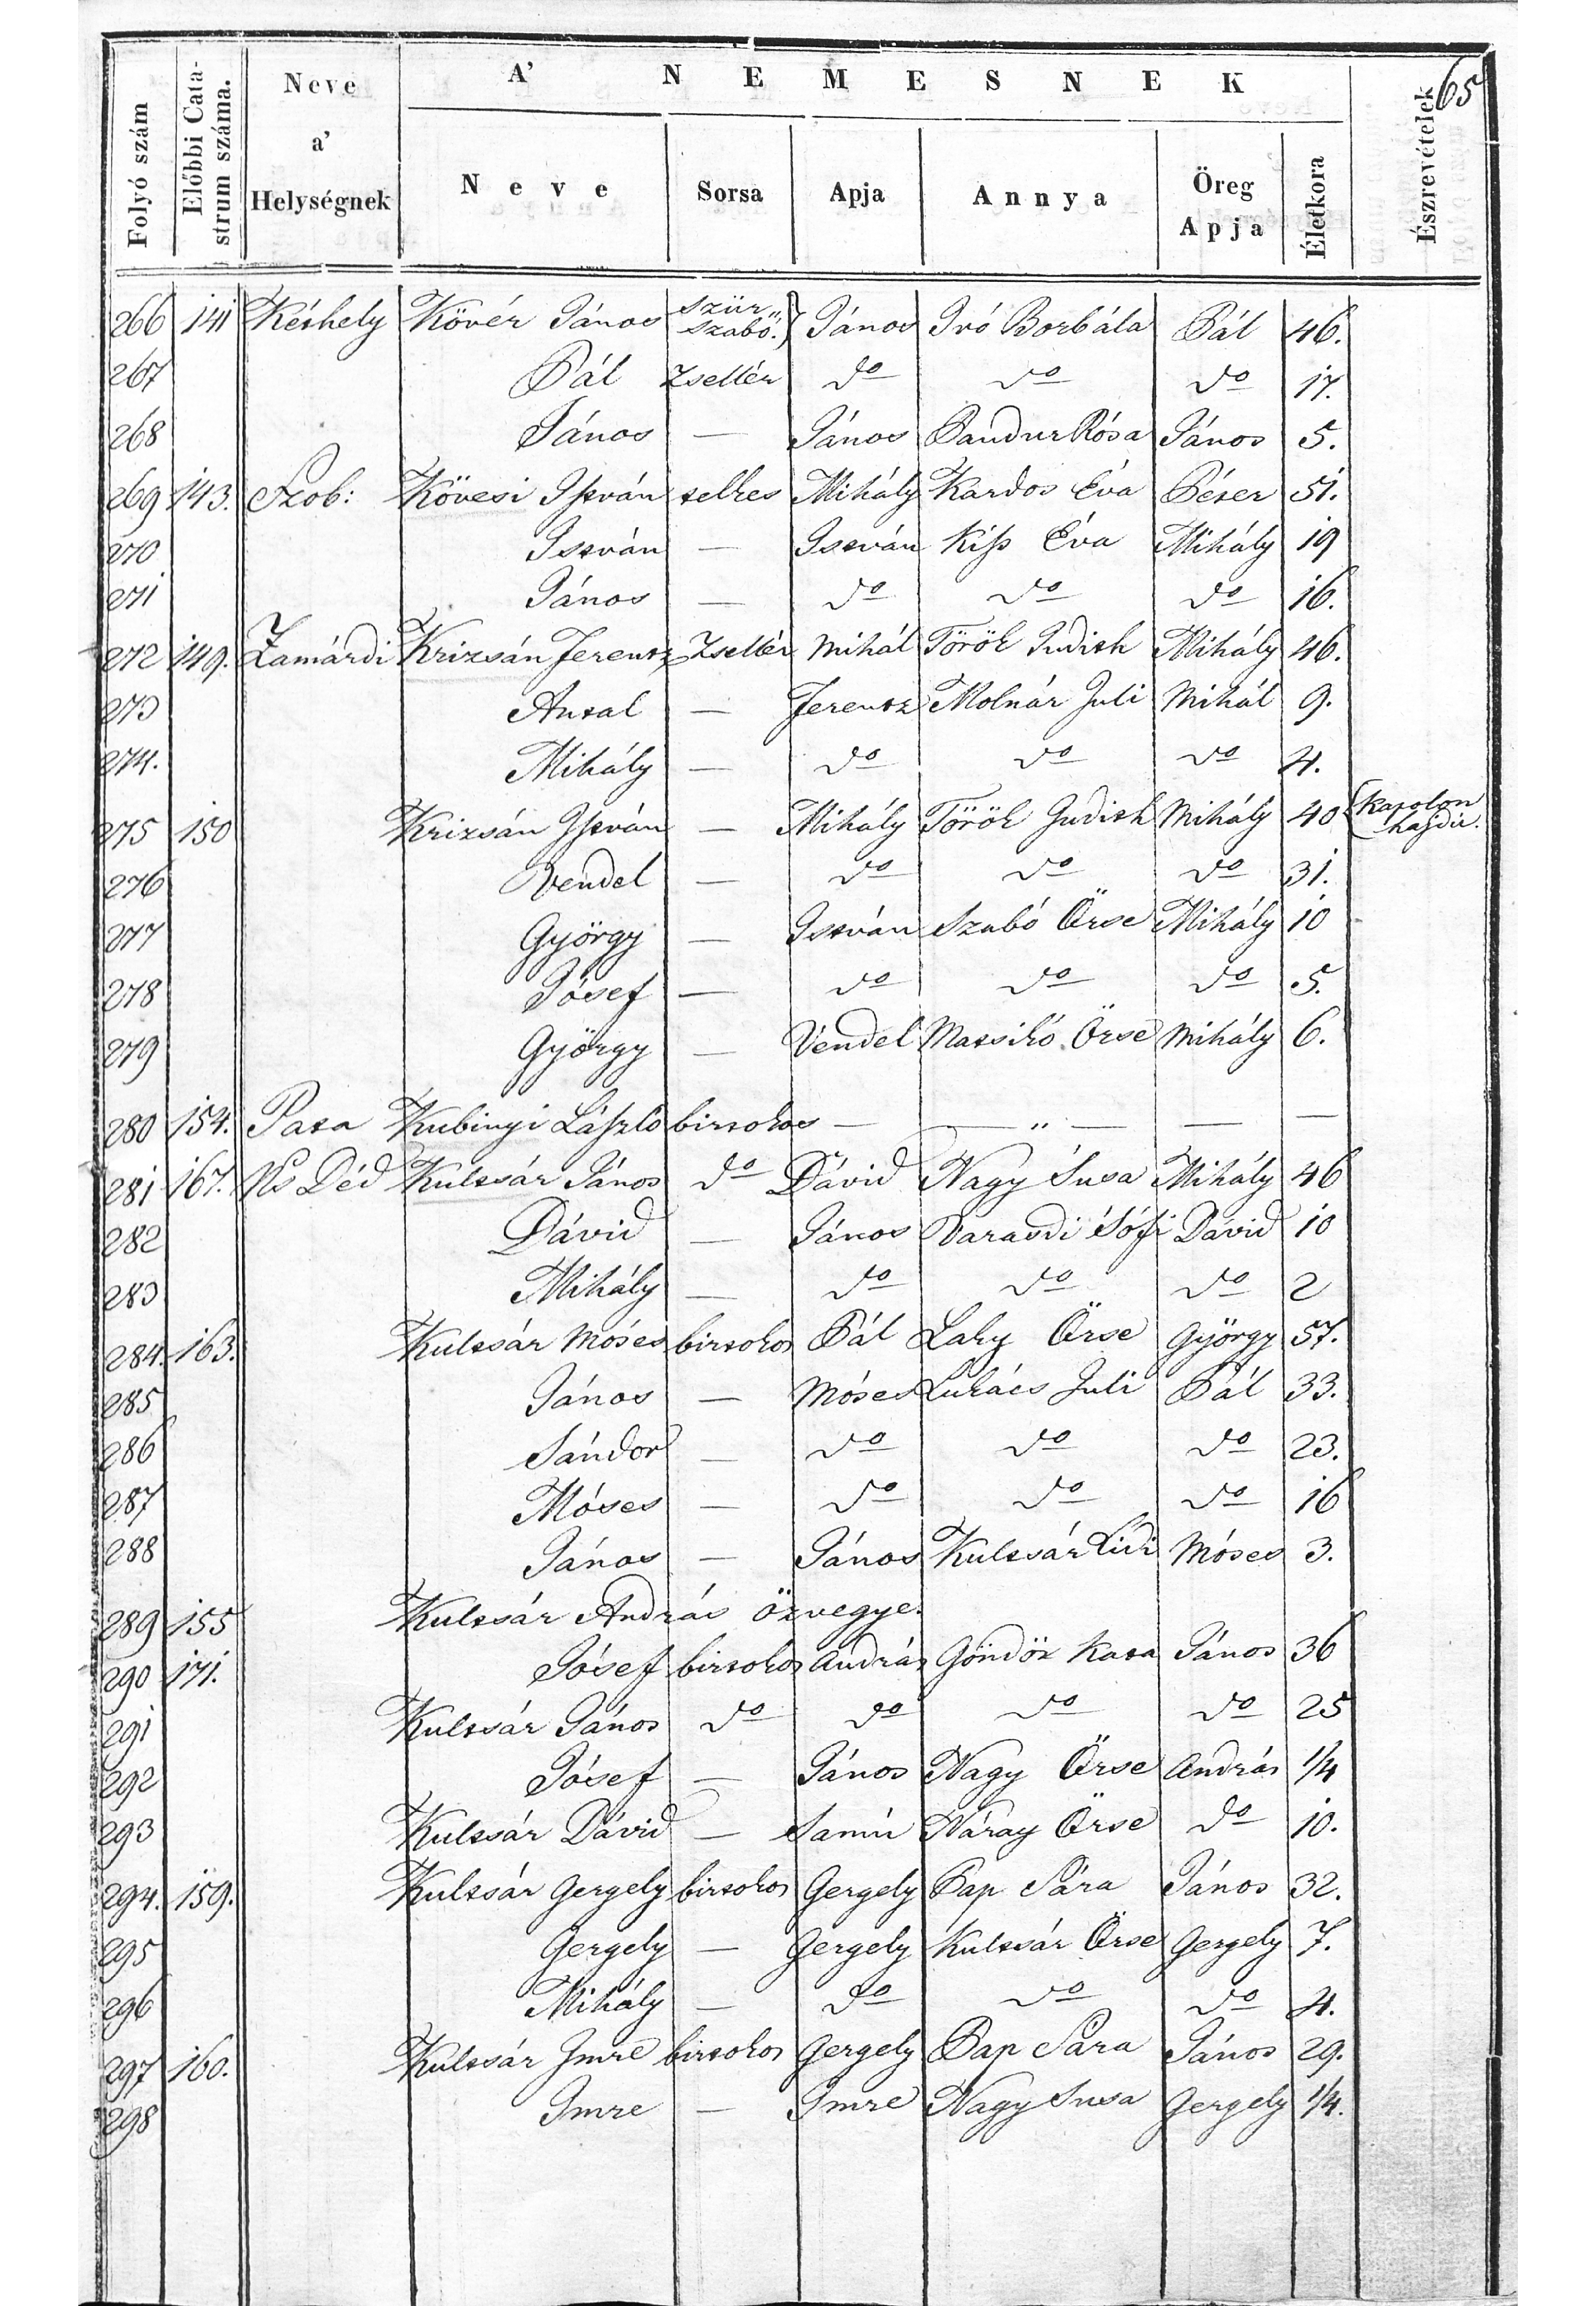 65
A' NEMESNEK
Folyó szám | Előbbi Catastrum száma. | Neve a' Helységnek | Neve | Sorsa | Apja | Annya | Öreg Apja | Életkora | Észrevételek
266 141 Kéthely Kövér János szür szabó. János Ivó Borbála Pál 46.
267 Pál Zsellér do do do 17.
268 János — János Pandur Rósa János 5.
269 143. Szob: Kövesi István telkes Mihály Kardos Éva Péter 51.
270 István — István Kiss Éva Mihály 19
271 János — do do do 16.
272 149. Zamárdi Krizsán Ferentz Zsellér Mihál Török Judith Mihály 46.
273 Antal — Ferentz Molnár Juli Mihál 9.
274. Mihály — do do do 4.
275 150 Krizsán István — Mihály Török Judith Mihály 40 Katolon hajdu.
276 Vendel — do do do 31.
277 György — István Szabó Örse Mihály 10
278 Jósef — do do do 5.
279 György — Vendel Matsikó Örse Mihály 6.
280 154. Pata Kubinyi László birtokos — — „ — — —
281 167. Ns Déd Kultsár János do Dávid Nagy Susa Mihály 46
282 Dávid — János Varasdi Sófi Dávid 10
283 Mihály — do do do 2
284. 163. Kultsár Móses birtokos Pál Laky Örse György 57.
285 János — Móses Lukács Juli Pál 33.
286 Sándor — do do do 23.
287 Móses — do do do 16
288 János — János Kultsár Lidi Móses 3.
289 155 Kultsár András özvegye.
290 171. Jósef birtokos András Göndöz Kata János 36
291 Kultsár János do do do do 25
292 Jósef — János Nagy Örse András 1/4
293 Kultsár Dávid — Samu Náray Örse do 10.
294. 159. Kultsár Gergely birtokos Gergely Pap Sára János 32.
295 Gergely — Gergely Kultsár Örse Gergely 7.
296 Mihály — do do do 4.
297 160. Kultsár Imre birtokos Gergely Pap Sára János 29.
298 Imre — Imre Nagy Susa Gergely 1/4.